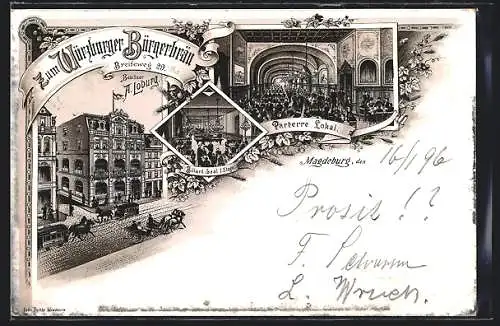 Zum Würzburger Bürgerbräu
Breiteweg 20.
Besitzer
A. Loburg
Parterre Lokal.
Billard Saal I. Etage
Magdeburg, den 16/1 96
Prosit!!
F.
L. Wruck.